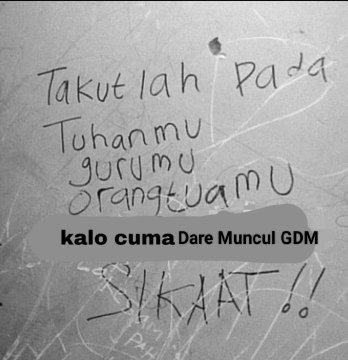 Takutlah pada
Tuhanmu
gurumu
orangtuamu
kalo cuma Dare Muncul GDM
SIKAAT!!